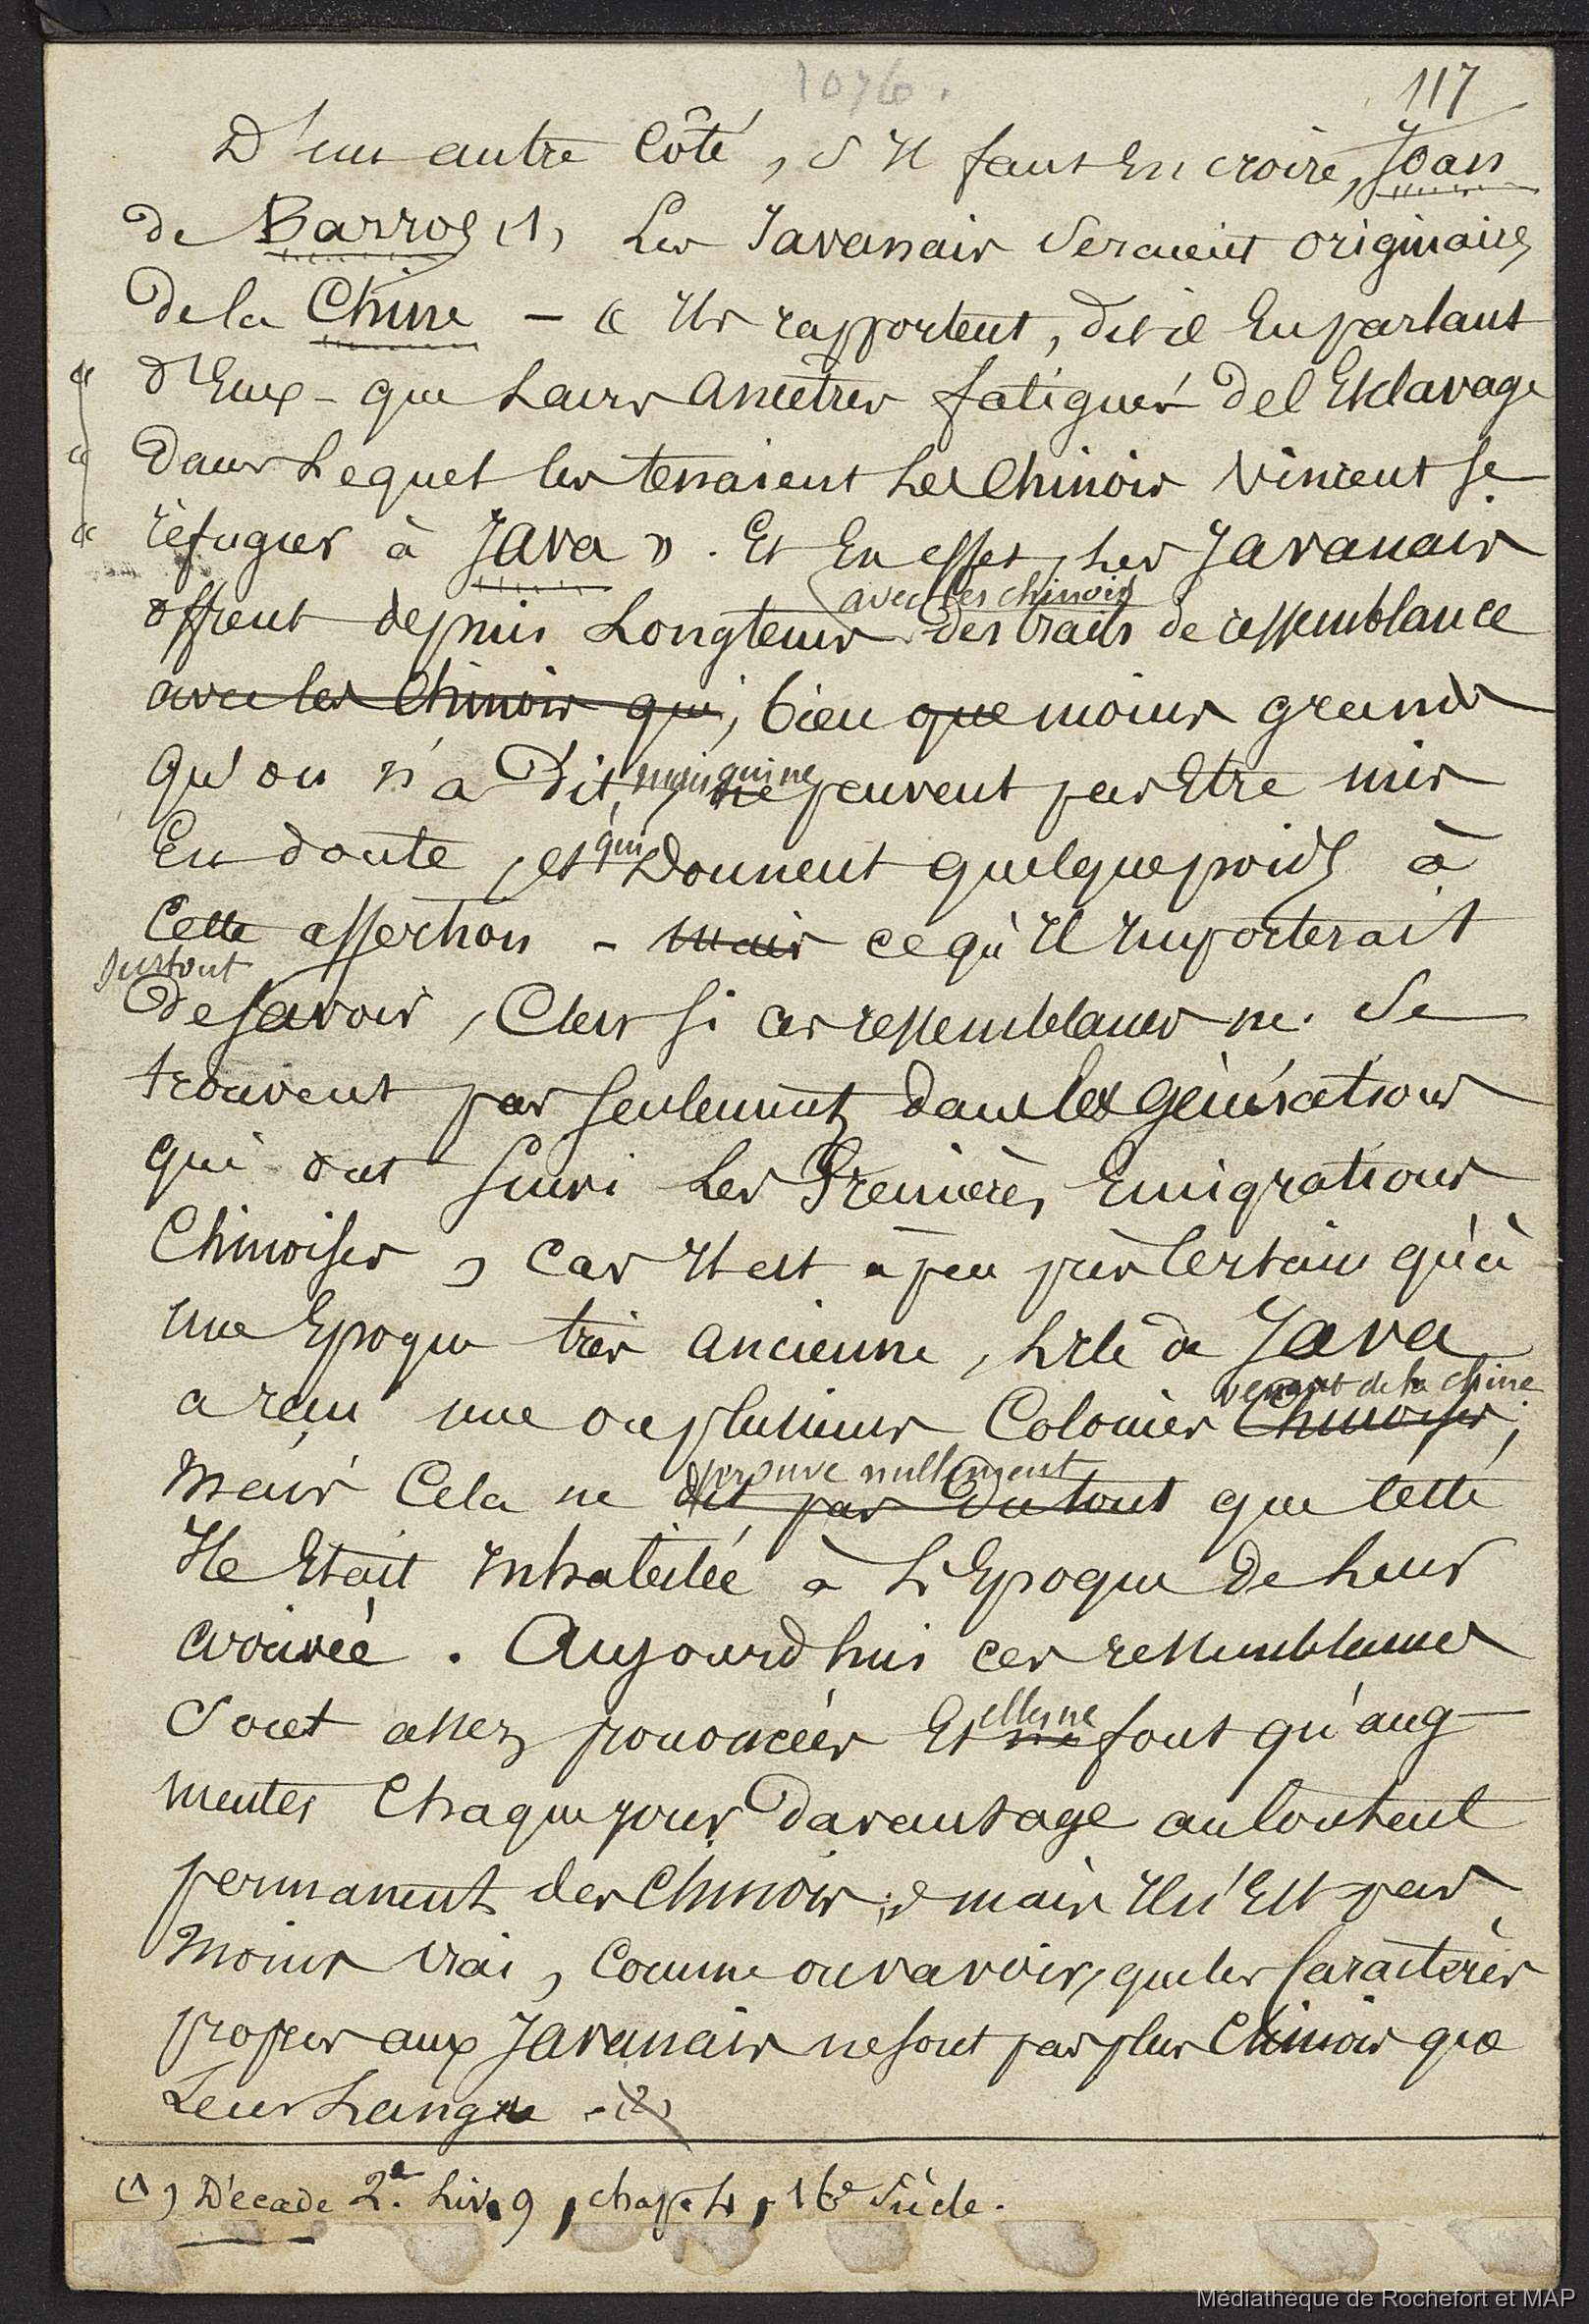 1076.
117
D'un autre Côté, s'Il faut En croire, Joan
de Barros (1) Les Javanais Seraient originaires
de la Chine - « Ils rapportent, dit il En parlant
« d'Eux - que Leurs Ancêtres fatigués de l'Esclavage
« dans Lequel les tenaient Les Chinois vinrent se
« réfugier à Java ». Et En effet, Les Javanais
avec les chinois
offrent depuis Longtems des traits de ressemblance
avec les Chinois qui, bien que moins grands
mais qui ne
qu'on n'a Dit, ne peuvent pas Etre mis
qui
En doute, et Donnent quelque poids à
Cette assertion - Mais ce qu'Il Importerait
surtout
de savoir, C'est si ces ressemblances ne se
trouvent pas seulement dans les générations
qui ont suivi Les Premières Emigrations
Chinoises, Car Il est à peu près Certain qu'à
une Epoque très ancienne, L'Ile de Java
venant de la chine
a reçu une ou plusieurs Colonies Chinoises;
prouve nullement
Mais Cela ne dit pas Du tout que Cette
Ile Etait Inhabitée à L'Epoque de Leur
arrivée. Aujourd'hui ces ressemblances
elles ne
Sont assez prononcées Et ne font qu'aug-
menter Chaque jour Davantage au Contact
permanent des Chinois; mais Il n'Est pas
Moins Vrai, Comme on va voir, que les Caractères
propres aux Javanais ne sont pas plus Chinois que
Leur Langue - (2)
(1) Décade 2e. Liv. 9, chap. 4, 16e Siècle.
Médiathèque de Rochefort et MAP